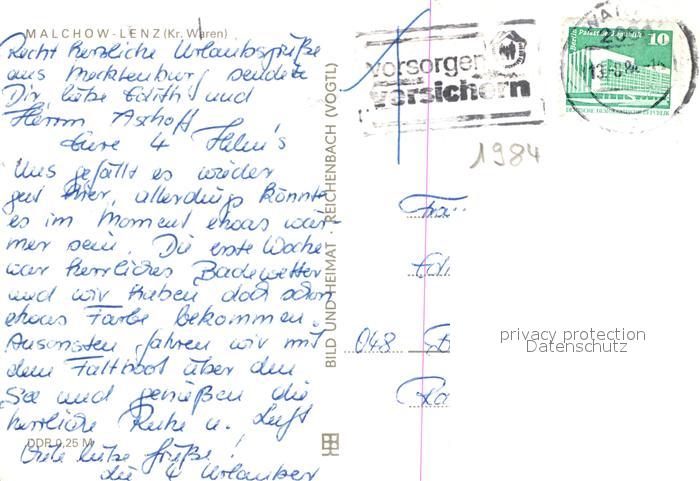 MALCHOW-LENZ (Kr. Waren)
Recht herzliche Urlaubsgrüße
aus Mecklenburg sendet
Dir, liebe Edith und
Herrn Aschoff
Eure 4 Helm's
Uns gefällt es wieder
gut hier, allerdings könnte
es im Moment etwas wär-
mer sein. Die erste Woche
war herrliches Badewetter
und wir haben doch schon
etwas Farbe bekommen.
Ansonsten fahren wir mit
dem Faltboot über den
See und genießen die
herrliche Ruhe u. Luft
DDR 0,25 M
Gute liebe Grüße!
die 4 Urlauber
BILD UND HEIMAT · REICHENBACH (VOGTL)
vorsorgen
versichern
Berlin Palast der Republik
10
DEUTSCHE DEMOKRATISCHE REPUBLIK
1984
Frau
048
privacy protection
Datenschutz